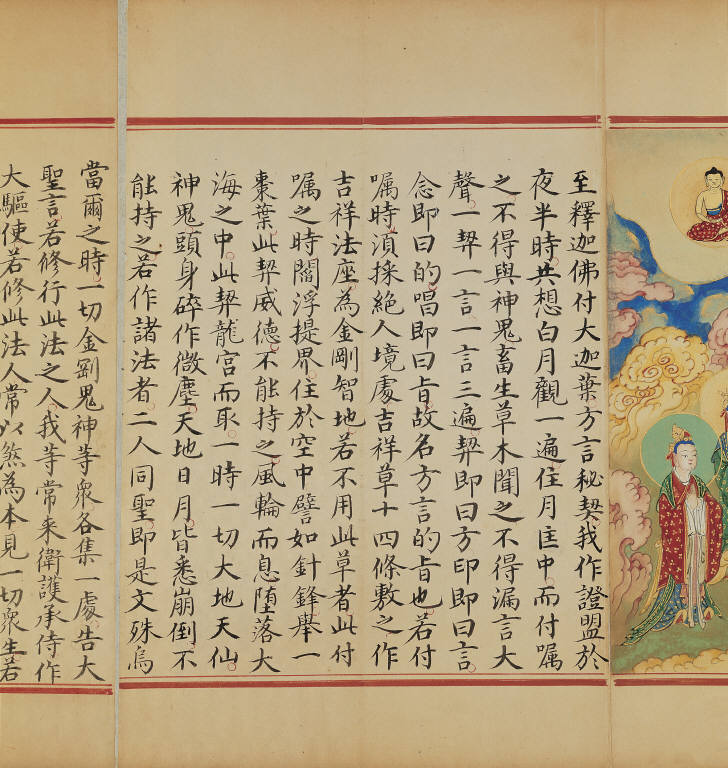 至釋迦佛付大迦葉方言秘契我作證盟於
夜半時共想白月觀一遍住月匡中而付囑
之不得與神鬼畜生草木聞之不得漏言大
聲一契一言一言三遍契即曰方印即曰言
念即曰的唱即曰旨故名方言的旨也若付
囑時湏採絕人境處吉祥草十四條敷之作
吉祥法座為金剛智地若不用此草者此付
囑之時閻浮提界住於空中譬如針鋒舉一
棗葉此契威德不能持之風輪而息墮落大
海之中此契龍宮而取一時一切大地天仙
神鬼頭身碎作微塵天地日月皆悉崩倒不
能持之若作諸法者二人同聖即是文殊為
當爾之時一切金剛鬼神等眾各集一處告大
聖言若修行此法之人我等常来衛護承侍作
大驅使若修此法人常以煞為本見一切衆生若